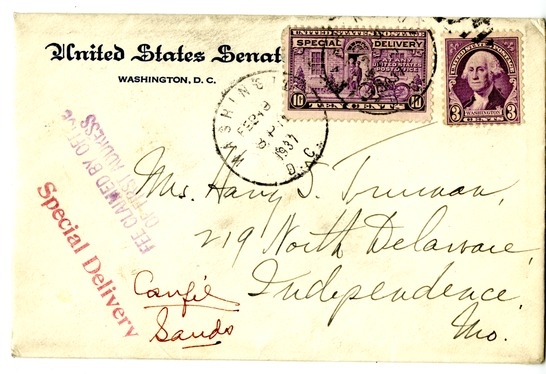 United States Senate
WASHINGTON, D. C.
UNITED STATES POSTAGE
SPECIAL DELIVERY
AT ANY
UNITED STATES
POST OFFICE
10 10
TEN CENTS
UNITED STATES POSTAGE
3 WASHINGTON 3
CENTS
WASHINGTON
FEB 9
8 PM
1937
D.C.
FEE CLAIMED BY OFFICE
OF FIRST ADDRESS
Special Delivery
Mrs. Harry S. Truman,
219 North Delaware,
Independence,
Mo.
Canfil
Sands